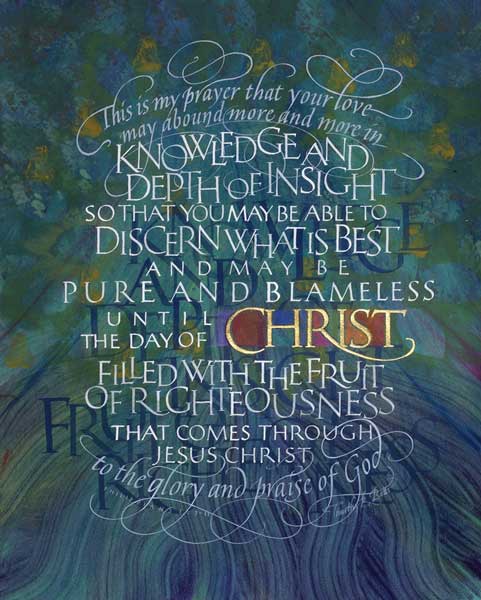 This is my prayer that your love
may abound more and more in
KNOWLEDGE AND
DEPTH OF INSIGHT
SO THAT YOU MAY BE ABLE TO
DISCERN WHAT IS BEST
AND MAY BE
PURE AND BLAMELESS
UNTIL
THE DAY OF CHRIST
FILLED WITH THE FRUIT
OF RIGHTEOUSNESS
THAT COMES THROUGH
JESUS CHRIST
to the glory and praise of God